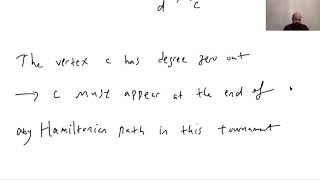 d c
The vertex c has degree zero out
→ c must appear at the end of
any Hamiltonian path in this tournament